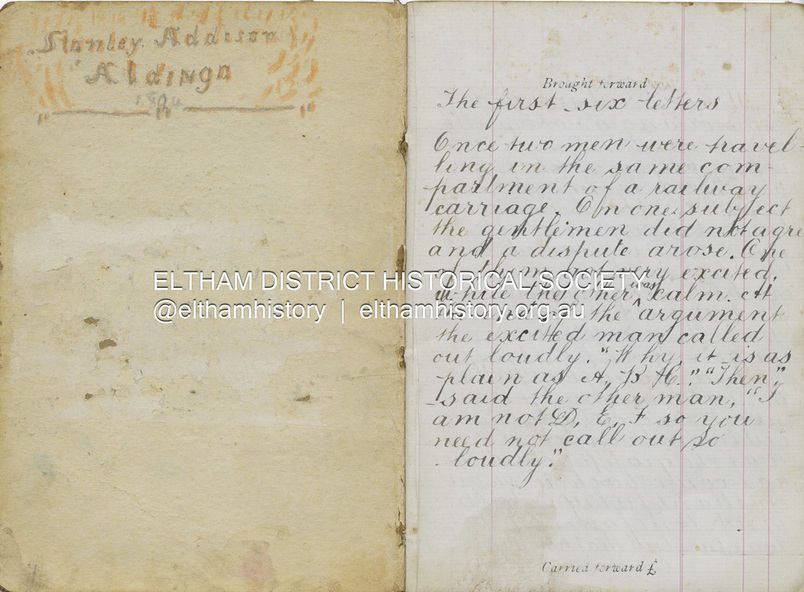 Stanley Addison
Aldinga
Brought forward
The first six letters
Once two men were travel-
ling in the same com-
partment of a railway
carriage. On one subject
the gentlemen did not agre
and a dispute arose. One
very excited,
ELTHAM DISTRICT HISTORICAL SOCIETY
while the other was calm. At
@elthamhistory | elthamhistory.org.au
the argument
the excited man called
out loudly. "Why, it is as
plain as A, B C." "Then",
said the other man, "I
am not D, E, F so you
need not call out so
loudly."
Carried forward £